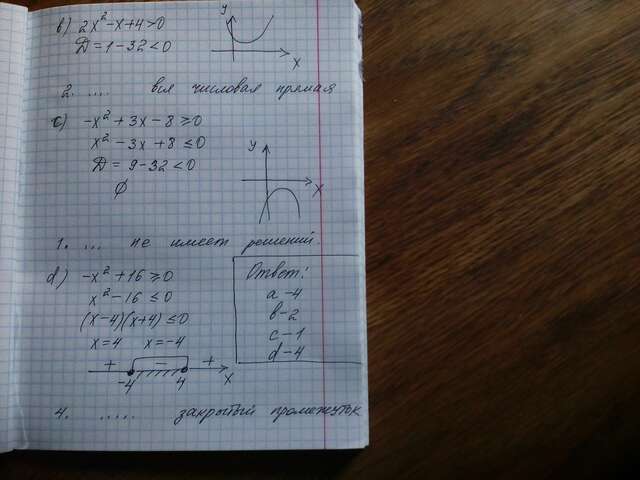 b) 2x² - x + 4 > 0
D = 1 - 32 < 0
y
x
2. .... вся числовая прямая
c) -x² + 3x - 8 ≥ 0
x² - 3x + 8 ≤ 0
D = 9 - 32 < 0
∅
y
x
1. ... не имеет решений.
d) -x² + 16 ≥ 0
x² - 16 ≤ 0
(x-4)(x+4) ≤ 0
x = 4 x = -4
+ - +
-4 4 x
Ответ:
a - 4
b - 2
c - 1
d - 4
4. ..... закрытый промежуток